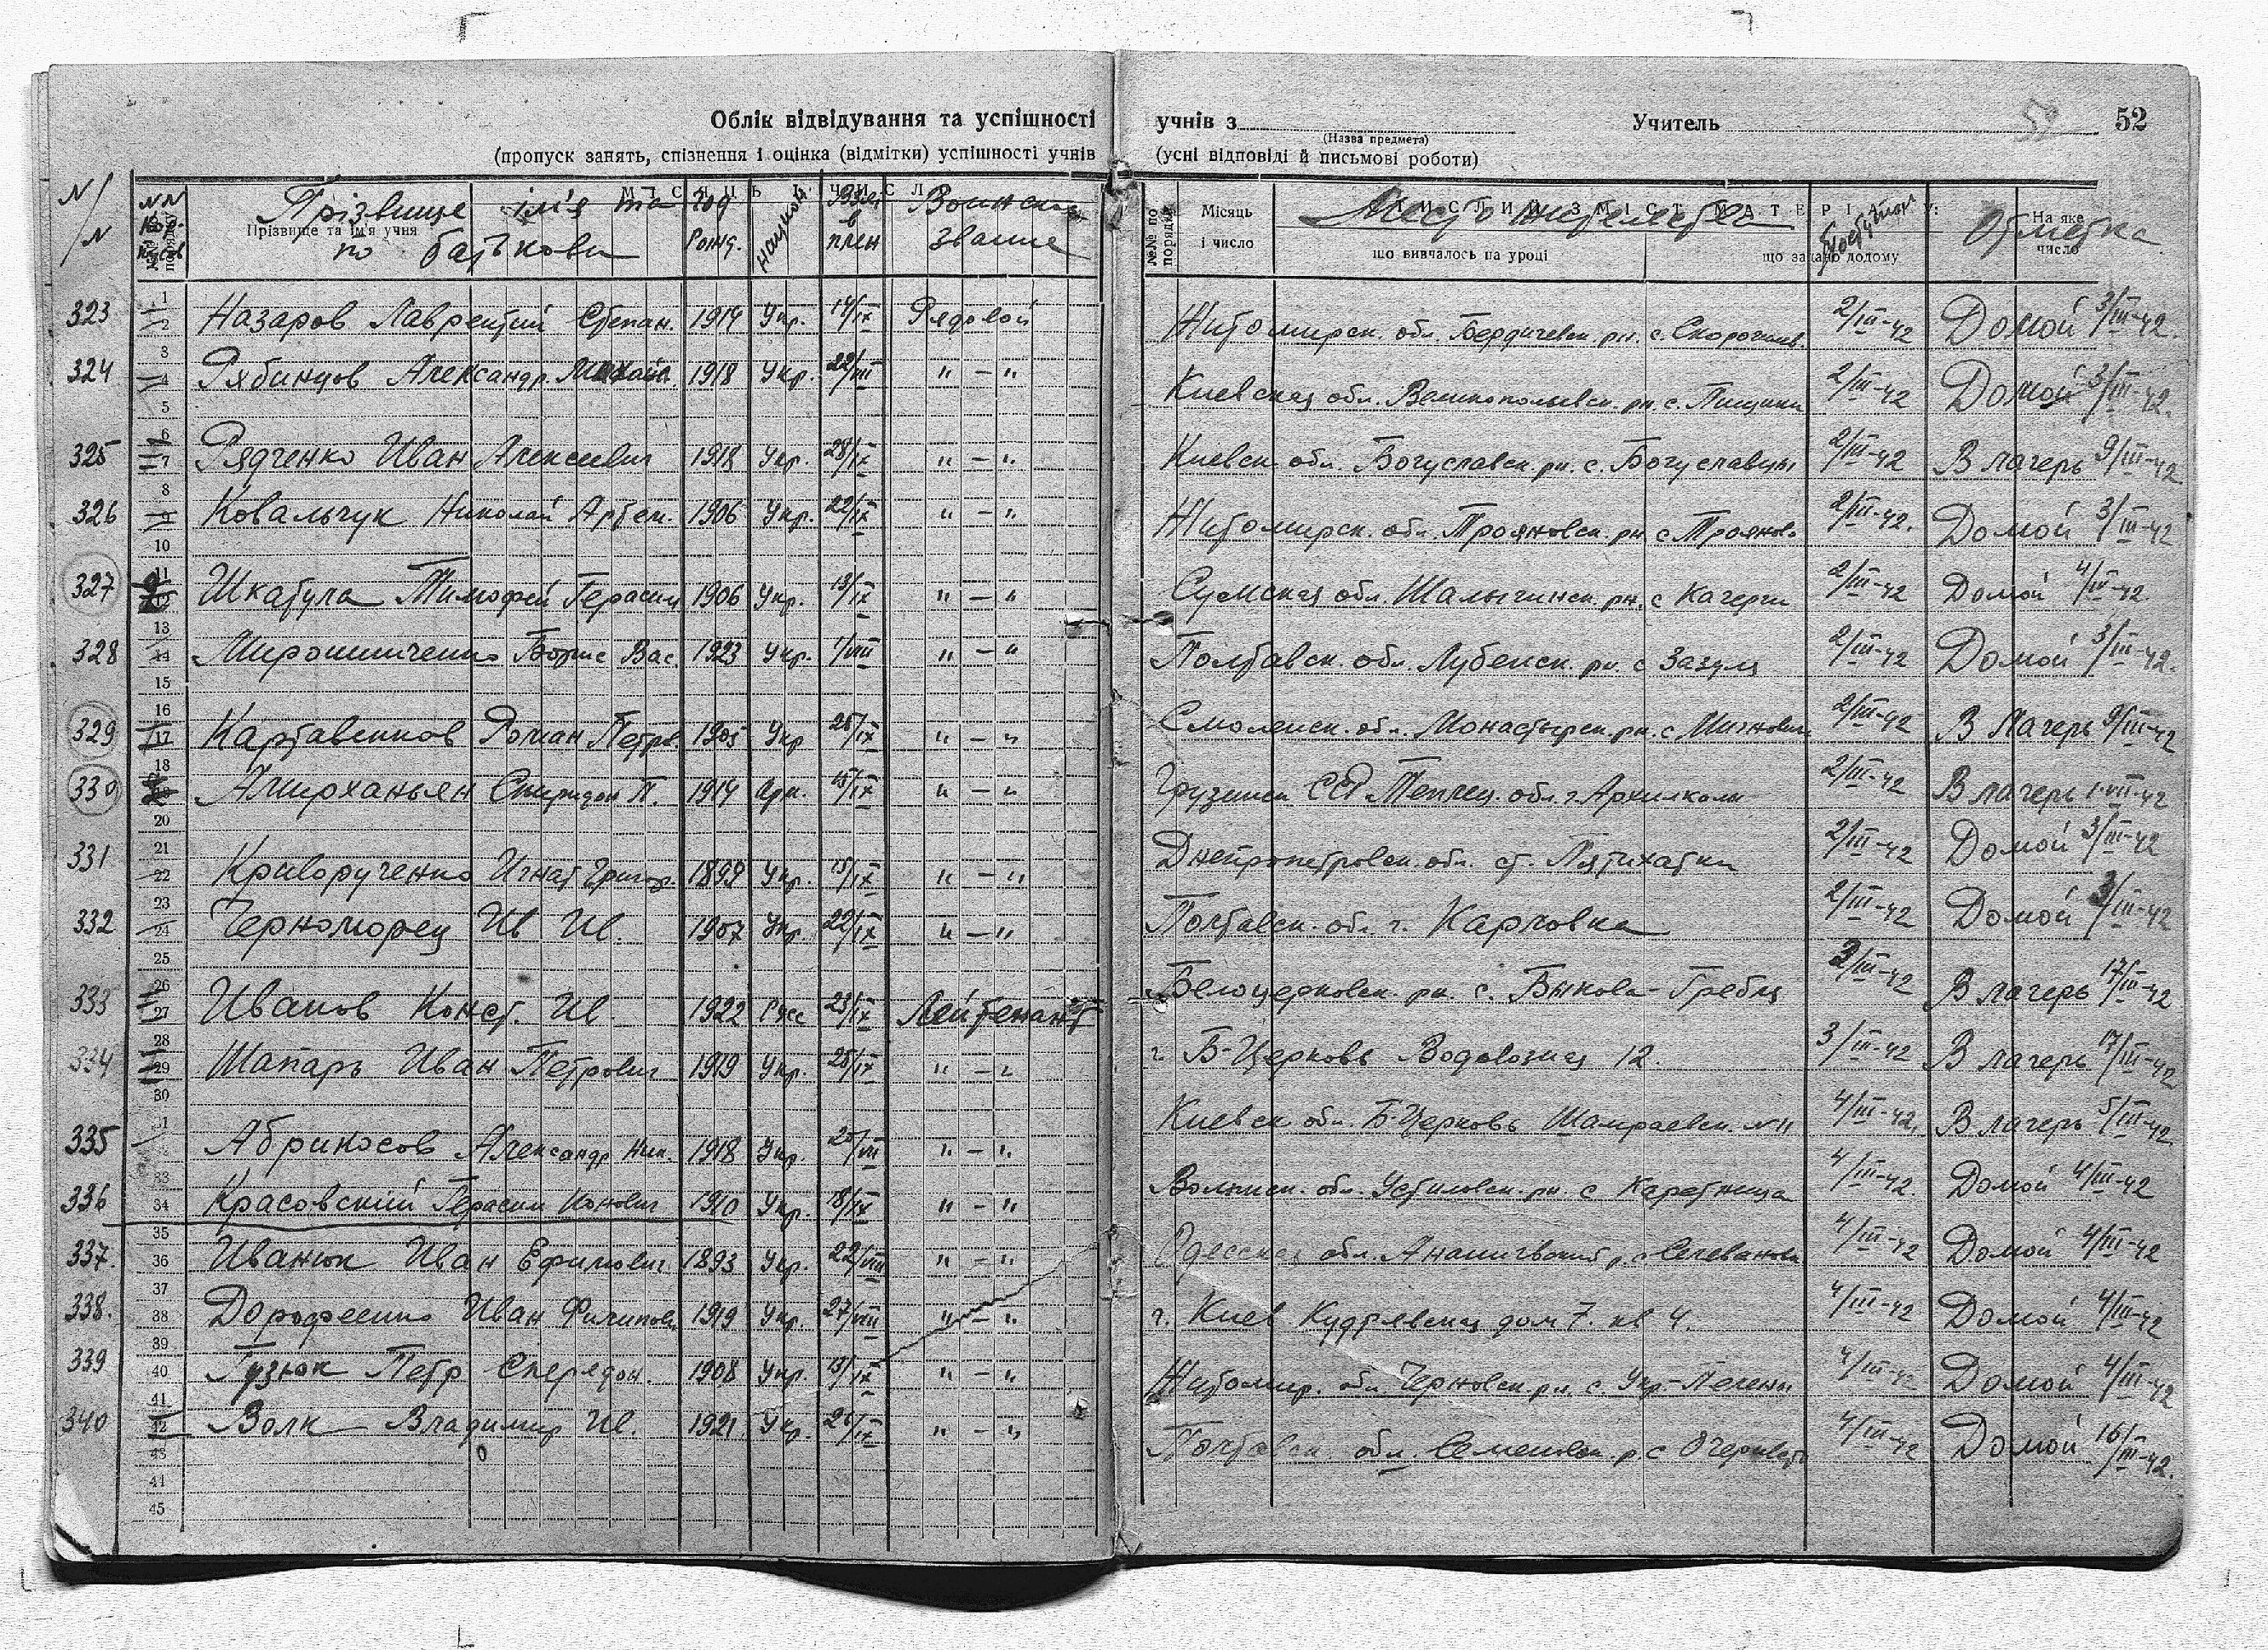 Облік відвідування та успішності учнів з Учитель 52
(Назва предмета)
(пропуск занять, спізнення і оцінка (відмітки) успішності учнів (усні відповіді й письмові роботи)
Прізвище ім'я та по батькови Год рожд. в плен Воинск звание Отметка
Прізвище та ім'я учня
№№ по порядку Місяць і число що вивчалось на уроці що задано додому На яке число
323 Назаров Лаврентий Степан. 1914 Укр. 14/IX Рядовой Житомирск. обл. Бердичевск. рн. с. 2/III-42 Домой 3/III-42.
324 Рябинцов Александр. 1918 Укр. 22/VIII " — " Киевская обл. рн. с. 2/III-42 Домой 3/III-42.
325 Рядченко Иван Алексеевич 1918 Укр. 28/IX " — " Киевск обл. Богуславск. рн. с. Богуславцы 2/III-42 В лагерь 9/III-42
326 Ковальчук Николай Артем. 1906 Укр. 22/IX " — " Житомирск. обл. Трояновск. рн с Троянов 2/III-42. Домой 3/III-42
327 Шкатула Тимофей Герасим 1906 Укр. 13/IX " — " Сумская обл. Шалыгинск. рн. с 2/III-42 Домой 4/III-42
328 Мирошниченко Борис Вас. 1923 Укр. 1/VIII " — " Полтавск. обл. Лубенск. рн. с Зазуля 2/III-42 Домой 3/III-42.
329 Картавенков Роман Петр. 1905 Укр 25/IX " — " Смоленск. обл. Монастырск. рн. с. 2/III-42 В Лагерь 9/III-42
330 Спиридон П. 1914 Арм. 15/IX " — " Грузинск ССР обл. г. 2/III-42 В лагерь 1-VII-42
331 Криворученко Игнат Григор. 1899 Укр. 15/IX " — " Днепропетровск. обл. ст. Пятихатки 2/III-42 Домой 3/III-42
332 Черноморец Ив Ив. 1907 Укр. 22/IX " — " Полтавск. обл. г. Карловка 2/III-42 Домой 3/III-42
333 Иванов Конст. Ив 1922 Рус 23/IX Лейтенант Белоцерковск. рн. с. Быкова-Гребля 2/III-42 В лагерь 17/III-42
334 Шапарь Иван Петрович 1919 Укр. 25/IX " — " г Б-Церковь Водовозная 12. 3/III-42 В лагерь 17/III-42
335 Абрикосов Александр Ник. 1918 Укр. 20/VII " — " Киевск обл. Б-Церковь Шамраевск. №11 4/III-42. В лагерь 5/III-42
336 Красовский Герасим 1910 Укр. 18/IX " — " Волынск. обл. Устиловск. рн с 4/III-42. Домой 4/III-42
337. Иванюк Иван Ефимович 1893 Укр. 22/VIII " — " Одесская обл. р. с. 4/III-42 Домой 4/III-42
338. Дорофеенко Иван Филипови 1919 Укр. 27/VIII " — " г. Киев Кудрявская дом 7. кв 4. 4/III-42 Домой 4/III-42
339 Гузюк Петр Сперядон. 1908 Укр. 13/IX " — " Житомир. обл. рн. с. Укр- 4/III-42 Домой 4/III-42
340 Волк Владимир Ив. 1921 Укр. 26/IX " — " Полтавск обл. Семеновск. р. с 4/III-42 Домой 16/III-42.